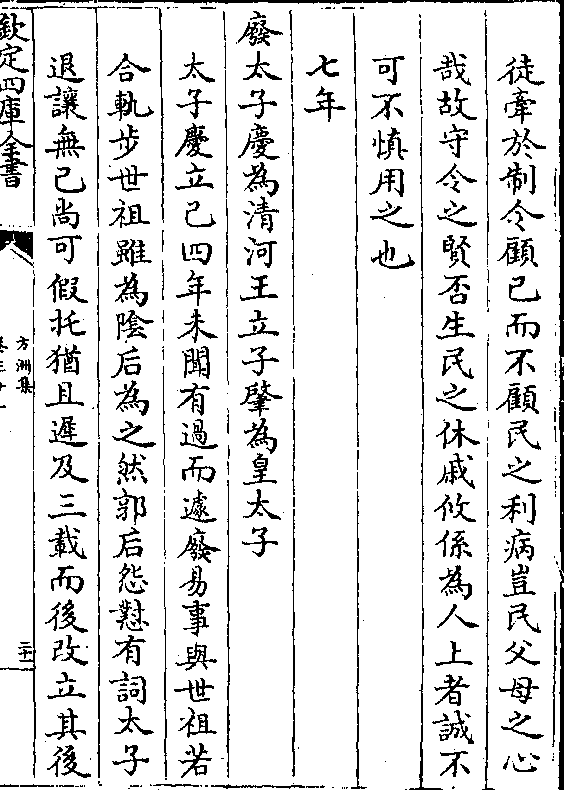 徒牽於制令顧已而不顧民之利病豈民父母之心
哉故守令之賢否生民之休戚攸係為人上者誠不
可不慎用之也
七年
廢太子慶為清河王立子肇為皇太子
太子慶立已四年未聞有過而遽廢易事與世祖若
合軌步世祖雖為陰后為之然郭后怨懟有詞太子
退讓無已尚可假托猶且遲及三載而後改立其後
欽定四庫全書
方洲集